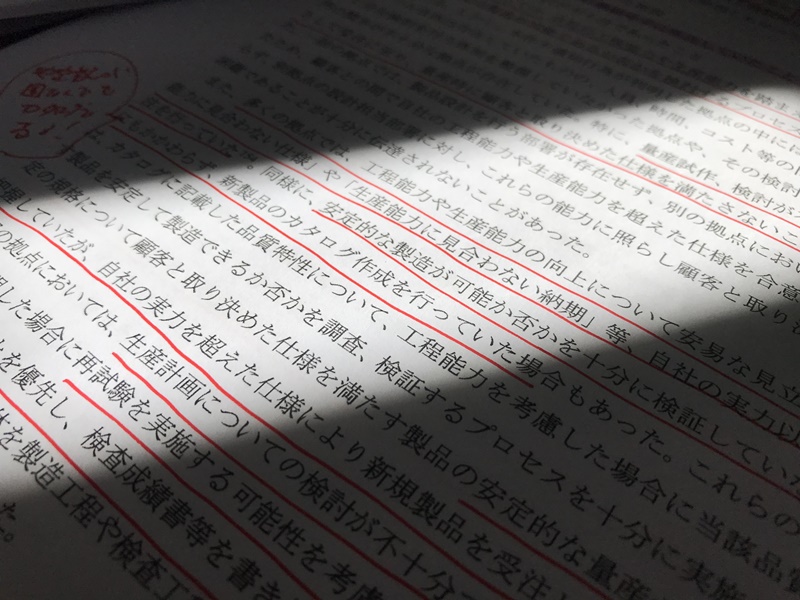 能力を踏まえ
プロセス
た拠点の中には
時間、コスト等の
た拠点や、その検討
特に、量産試作、検討が
取り決めた仕様を満たさないこ
う部署が存在せず、別の拠点におい
工程能力や生産能力を超えた仕様を合意
に対し、これらの能力に照らし顧客と取り
問題であることが十分に伝達されないことがあった。
また、多くの拠点では、工程能力や生産能力の向上について安易な見立
能力に見合わない仕様」や「生産能力に見合わない納期」等、自社の実力以
注を行っていた。同様に、安定的な製造が可能か否かを十分に検証していな
もかかわらず、新製品のカタログ作成を行っていた場合もあった。これらの
は、カタログに記載した品質特性について、工程能力を考慮した場合に当該品質
製品を安定して製造できるか否かを調査、検証するプロセスを十分に実施
定の規格について顧客と取り決めた仕様を満たす製品の安定的な量産
把握していたが、自社の実力を超えた仕様により新規製品を受注し
の拠点においては、生産計画についての検討が不十分
した場合に再試験を実施する可能性を考慮
を優先し、検査成績書等を書き
体を製造工程や検査工
た。